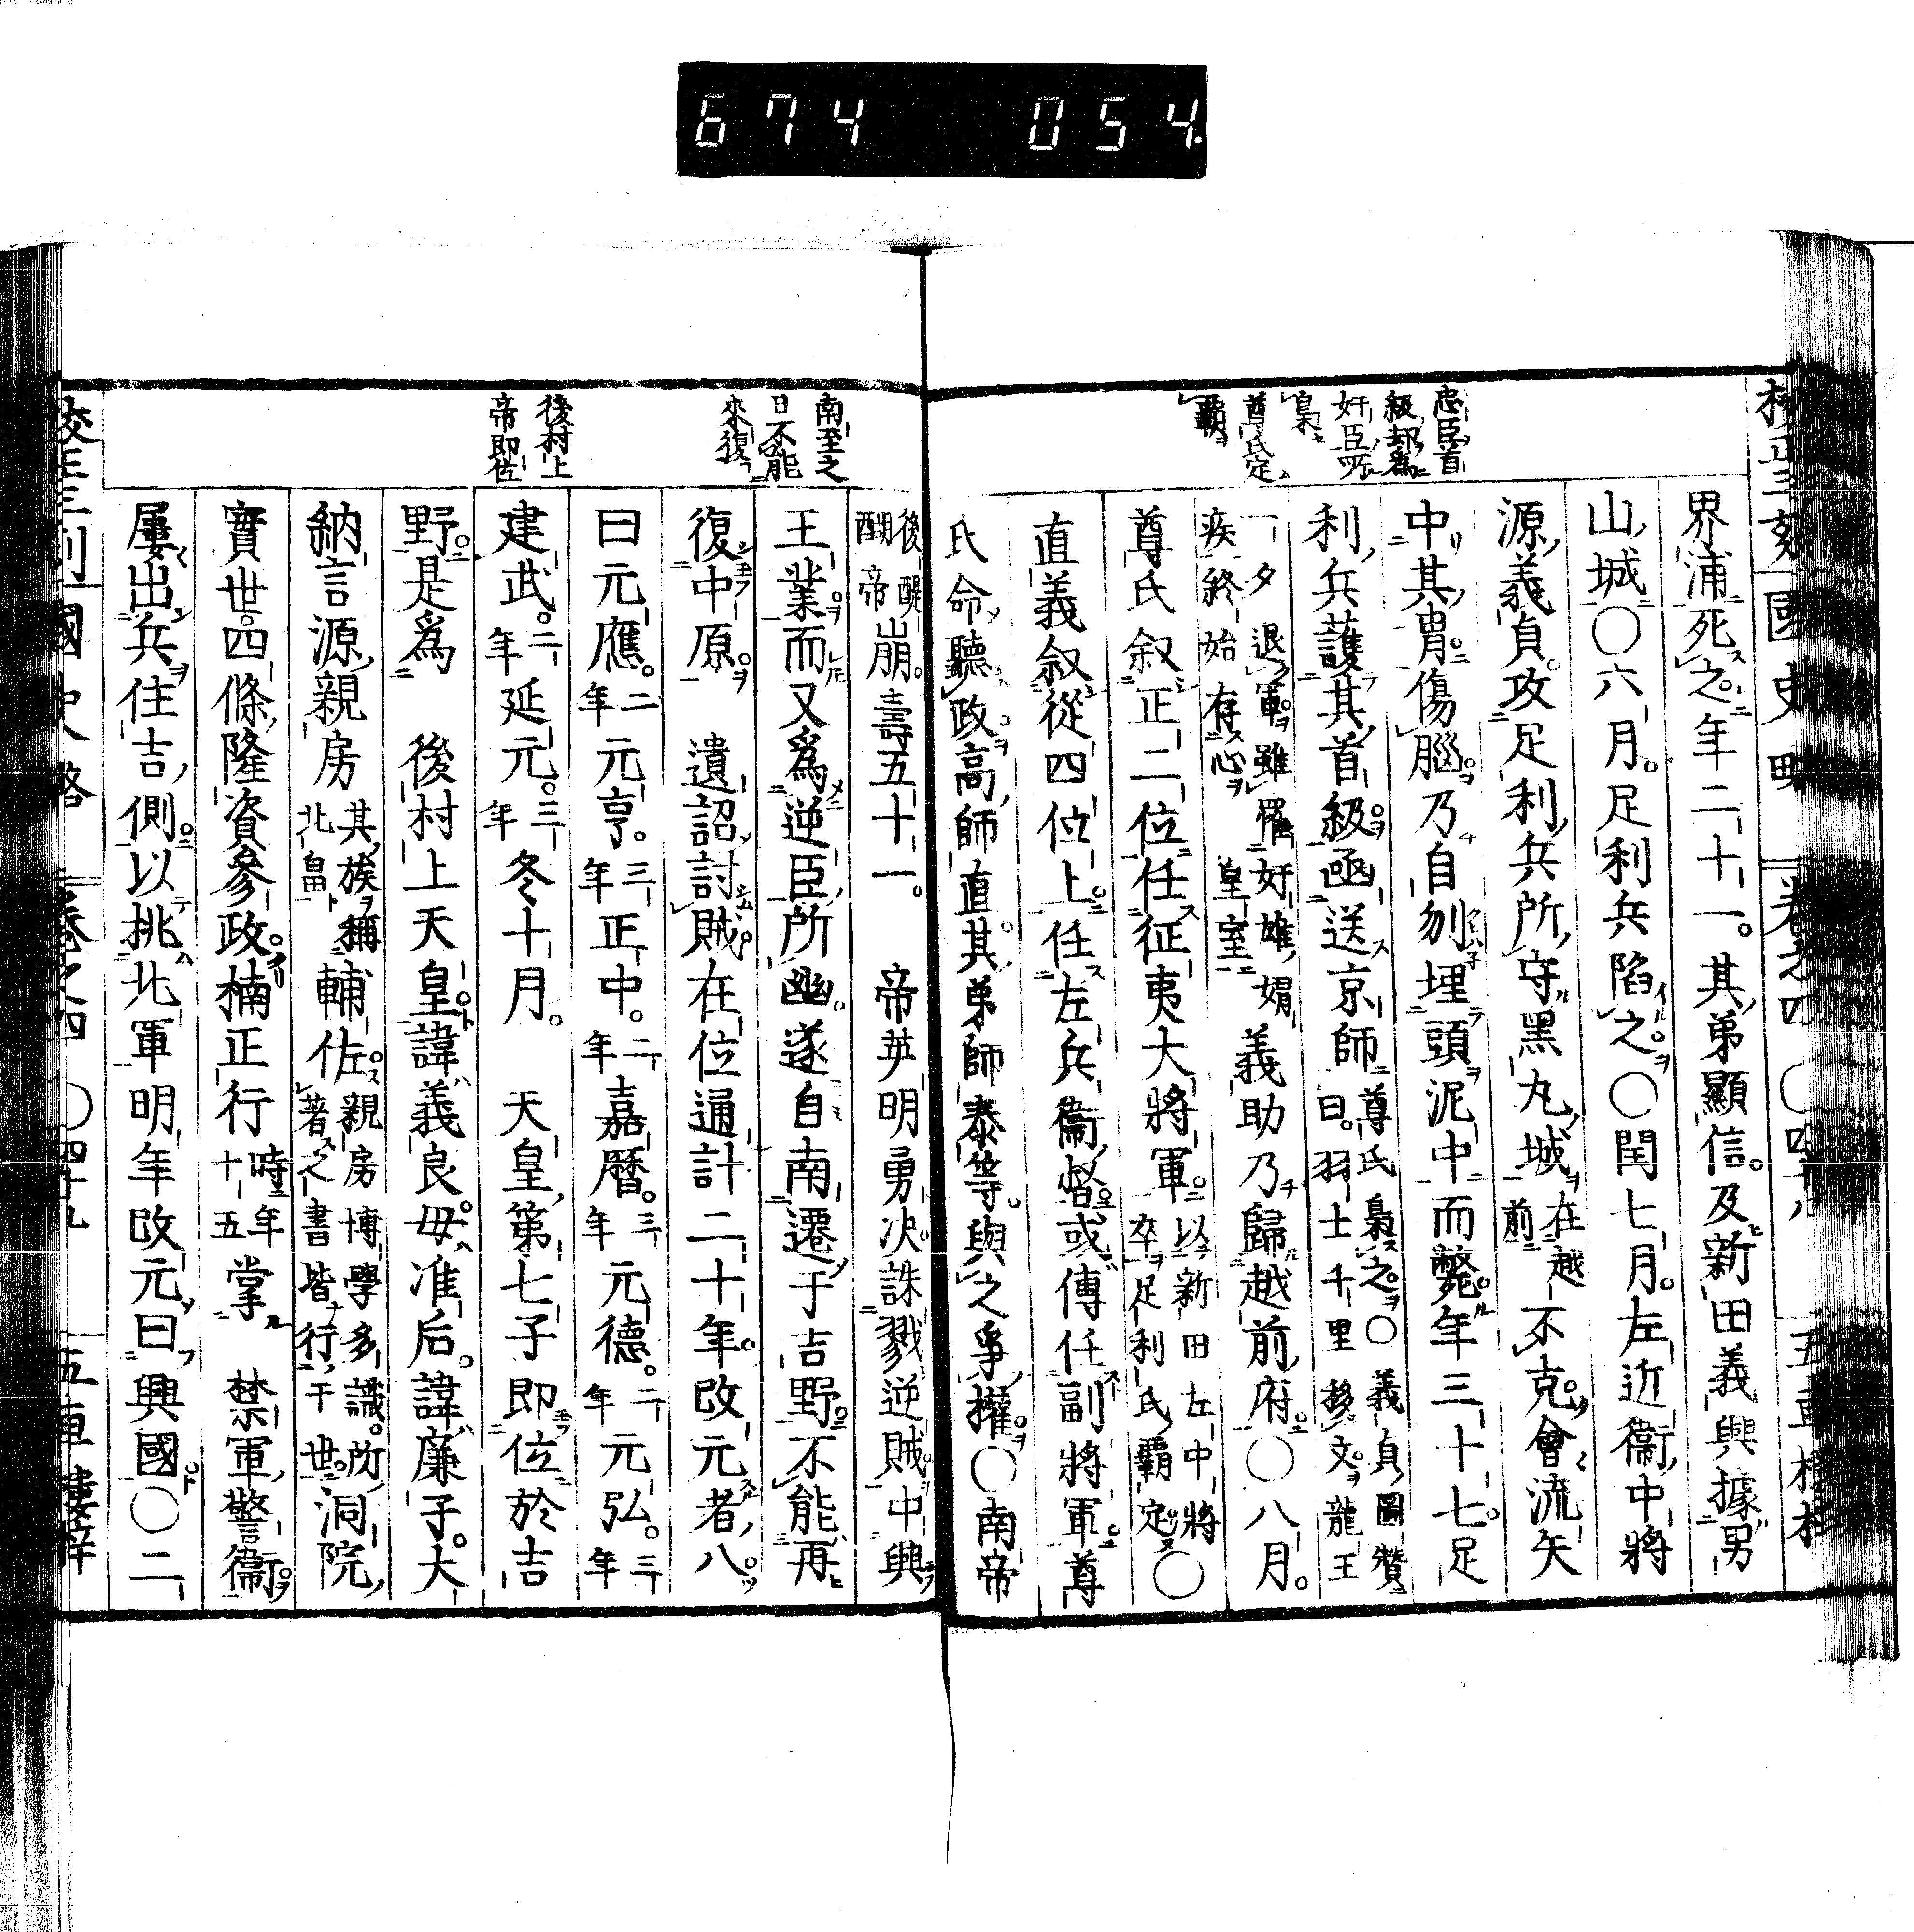 674 054
國史略 卷之四 〇四十八 五車樓梓
忠臣首
級却爲
奸臣所
梟
尊氏定
覇
界浦死之年二十一。其弟顯信。及新田義興據男
山城〇六月。足利兵陷之〇閏七月。左近衞中將
源義貞。攻足利兵所守黑丸城在越前不克會流矢
中其冑。傷腦乃自刎埋頭泥中而斃年三十七。足
利兵護其首級函送京師尊氏梟之〇義貞圖贊曰。羽士千里移文龍王
一夕退軍雖罹奸雄媚疾終始存心皇室義助乃歸越前府〇八月。
尊氏叙正二位任征夷大將軍。以新田左中將卒足利氏覇定〇
直義叙從四位上。任左兵衞督或傳任副將軍。尊
氏命聽政高師直其弟師泰等。與之爭權〇南帝
南至之
日不能
來復
後村上
帝即位
後醍醐帝崩。壽五十一。帝英明勇決誅戮逆賊中興
王業而又爲逆臣所幽。遂自南遷于吉野。不能再
復中原。遺詔討賊在位通計二十年。改元者八。
曰元應。二年元亨。三年正中。二年嘉曆。三年元德。二年元弘。三年
建武。二年延元。三年冬十月。天皇第七子即位於吉
野。是爲後村上天皇。諱義良。母准后。諱廉子。大
納言源親房其族稱北畠輔佐。親房博學多識。所著之書皆行干世。洞院
實世。四條隆資參政。楠正行時年十五掌禁軍警衞。
屢出兵住吉側。以挑北軍明年改元曰興國。〇二
校正三刻 國史略 卷之四 〇四十九 五車樓梓